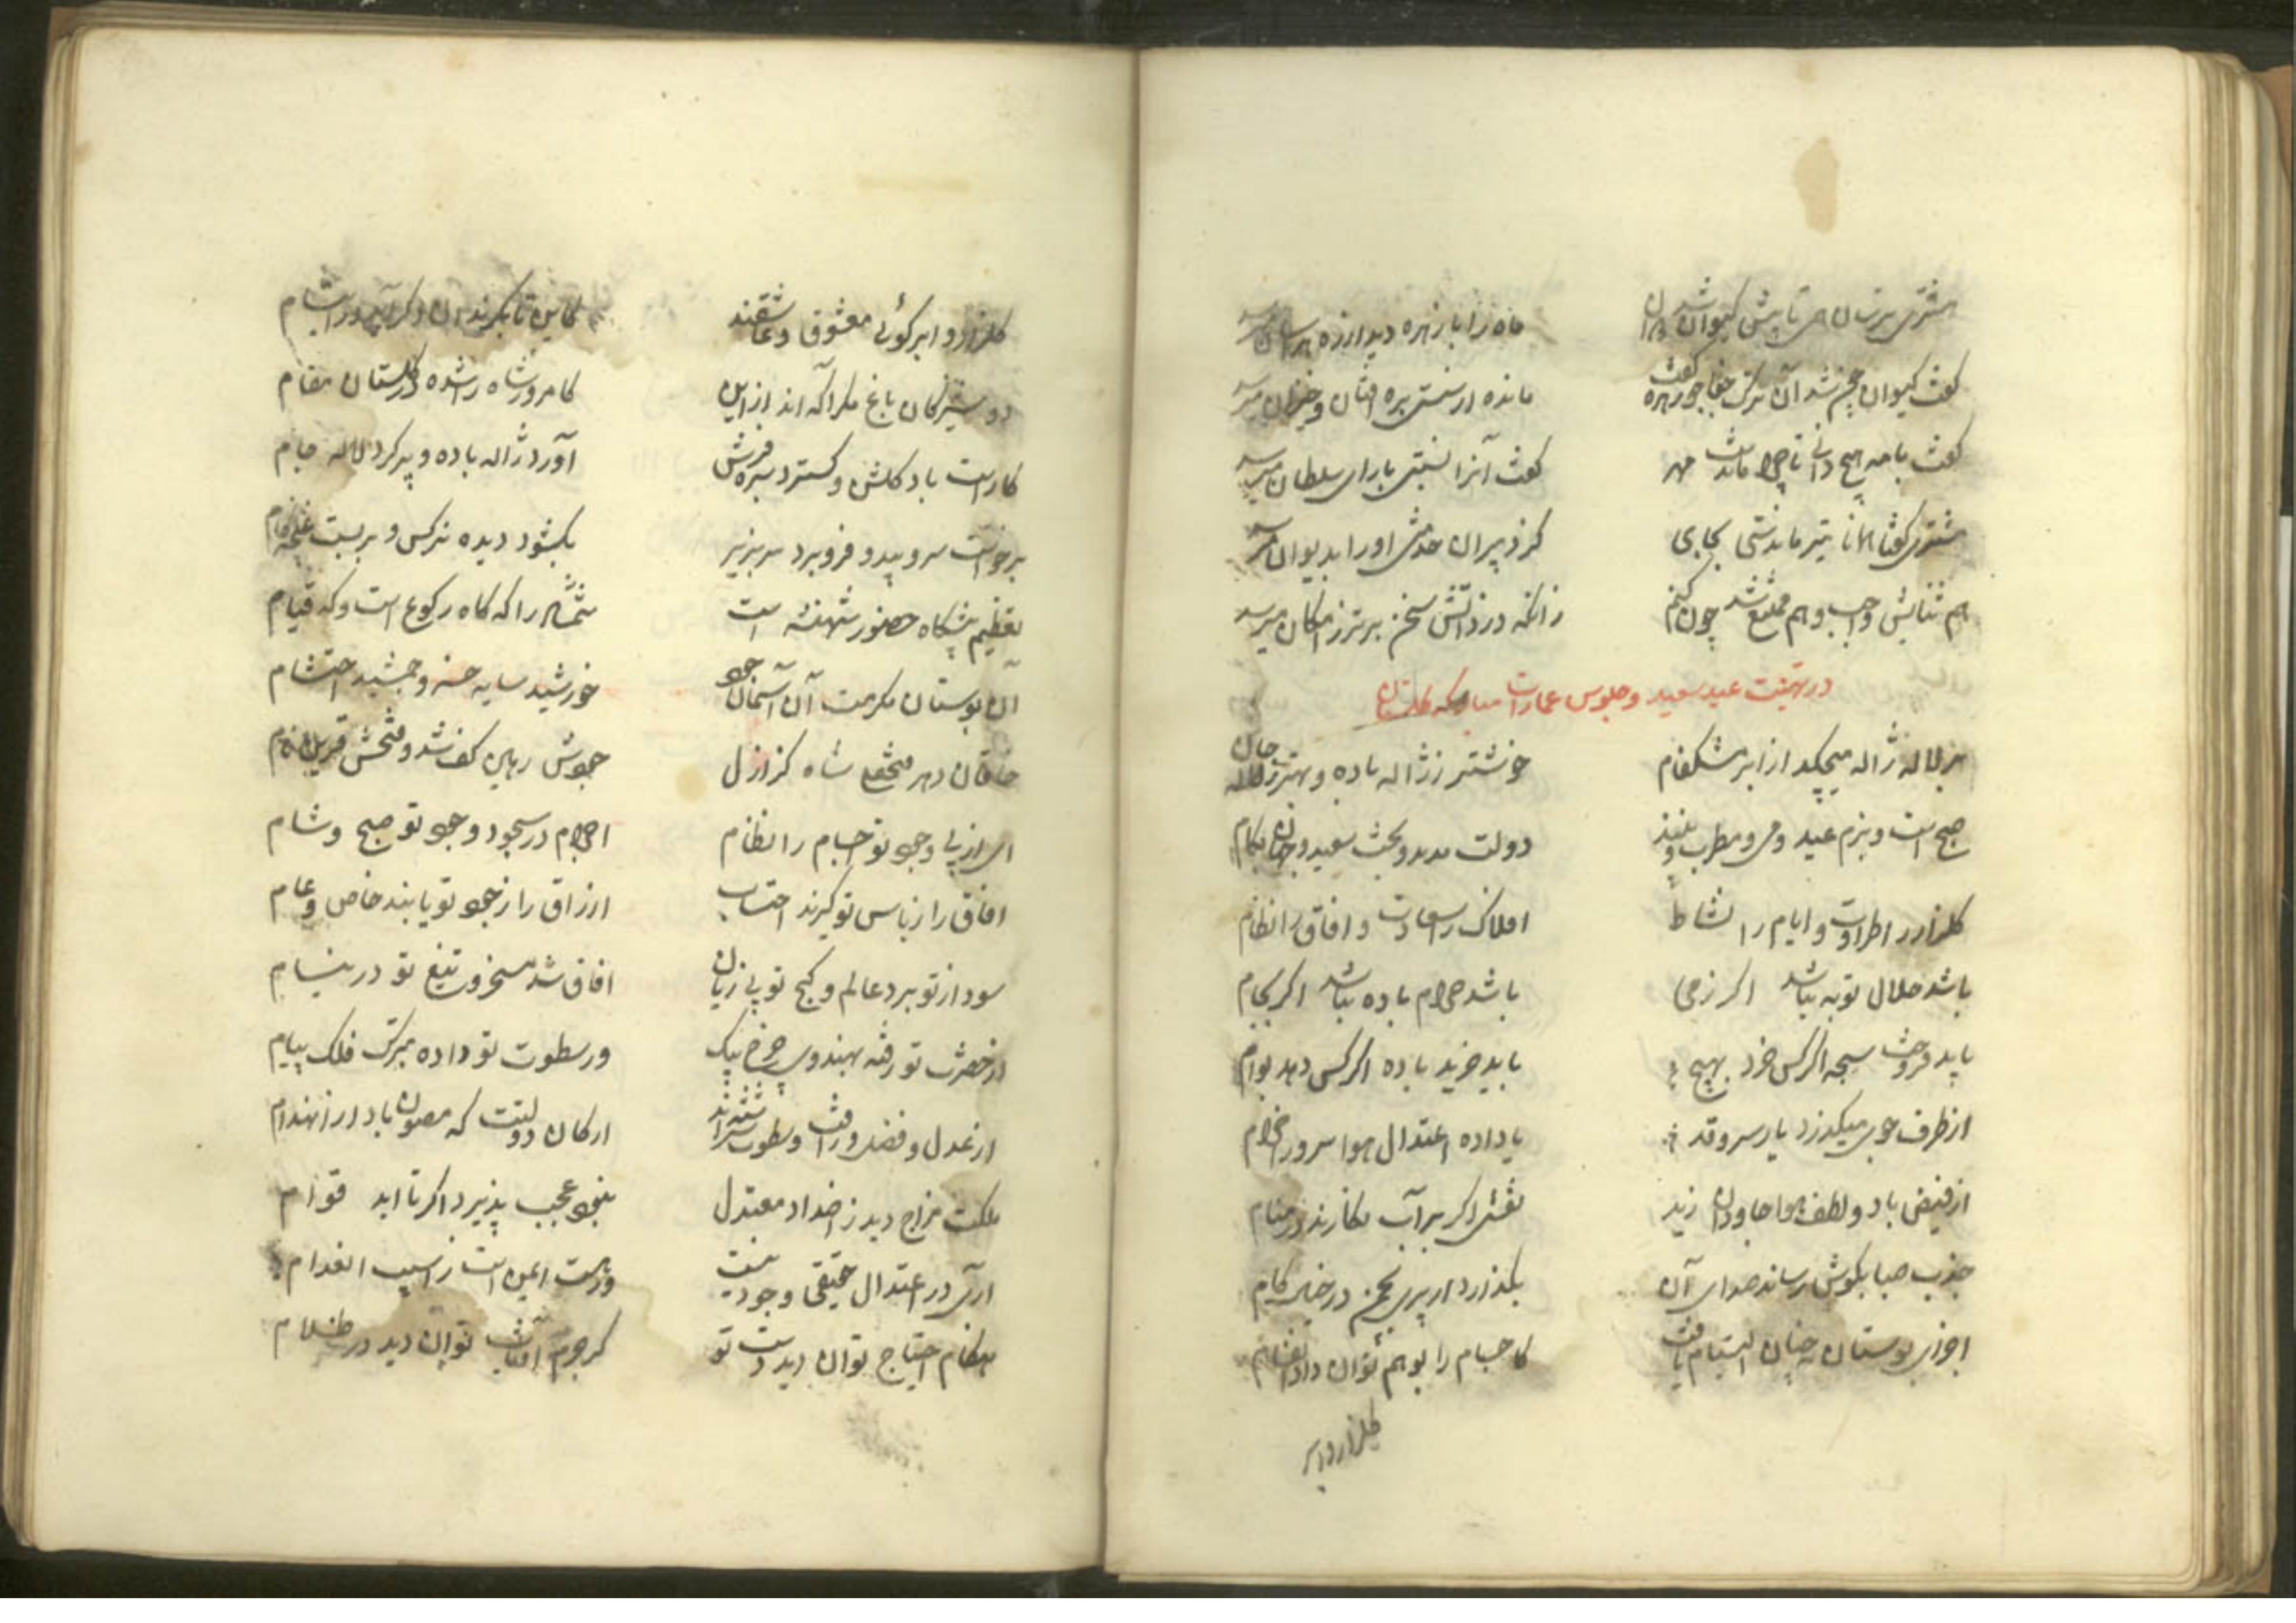 مشتری ترسان همی تا پیش کیوان شد دوان ماه را با زهره دید ارزه هراسان میرسد
گفت کیوان چم شد آن ترک جفا جو زهره گفت مانده از سستی بره افتان و خیزان میرسد
گفت با مه هیچ دانی تا چرا ماندست مهر گفت آنرا نسبتی با رای سلطان میرسد
مشتری گفتا همانا تیر ماندستی بجای کز دبیران خدمتی او را بدیوان میرسد
هم ثنایش واجب و هم ممتنع شد چون کنم زانکه در ذاتش سخن برتر ز امکان میرسد
در تهنیت عید سعید و جلوس عمارات مبارکه گلستان
بر لاله ژاله میچکد از ابر مشکفام خوشتر ز ژاله باده و بهتر ز لاله جام
صبح است و بزم عید و می و مطرب و نبیذ دولت مدید و بخت سعید و جهان بکام
گلزار را طراوت و ایام را نشاط افلاک را سعادت و آفاق را نظام
باشد حلال توبه نباشد اگر ز می باشد حرام باده نباشد اگر بجام
باید فروخت سبحه اگر کس خرد بهیچ باید خرید باده اگر کس دهد بوام
از طرف جوی میگذرد یار سرو قد یا داده اعتدال هوا سرو را خرام
از فیض باد و لطف هوا جاودان زید نقشی اگر بر آب نگارند در منام
جذب صبا بگوش رساند صدای آن بگذارد ار پری بچمن در خیال گام
اجزای بوستان چنان التیام یافت کاجسام را بوهم نتوان داد انقسام
گلزار و ابر
گلزار و ابر گوئی معشوق و عاشقند
دوشیزگان باغ مگر آگه اند ازین کامروز شاه را شده در گلستان مقام
کاراست باد گلشن و گسترد سبزه فرش آورد ژاله باده و پر کرد لاله جام
برخواست سرو و بید و فرو برد سر بزیر بگشود دیده نرگس و بربست غنچه فام
تعظیم پیشگاه حضور شهنشه است شمشاد را که گاه رکوع است و که قیام
آن بوستان مکرمت آن آسمان جود خورشید سایه خسرو جمشید احتشام
خاقان دهر فتحعلی شاه کز ازل جودش رهین کف شد و فتحش قرین نام
ای از پی وجود تو اجسام را نظام اجرام در سجود وجود تو صبح و شام
آفاق را ز باس تو گیرند احتساب ارزاق را ز جود تو یابند خاص و عام
سود از تو برد عالم و گنج تو بی زیان آفاق شد مسخر و تیغ تو در نیام
از حضرت تو رفته بهندوی چرخ پیک وز سطوت تو داده بترک فلک پیام
از عدل و فضل و رافت و سطوت سرشته اند ارکان دولتت که مصون باد از انهدام
ملکت مزاج دید ز اضداد معتدل نبود عجب پذیرد اگر تا ابد قوام
آری در اعتدال حقیقی وجود نیست ور هست ایمن است ز آسیب انعدام
هنگام احتیاج توان دید دست تو گر جرم آفتاب توان دید در ظلام